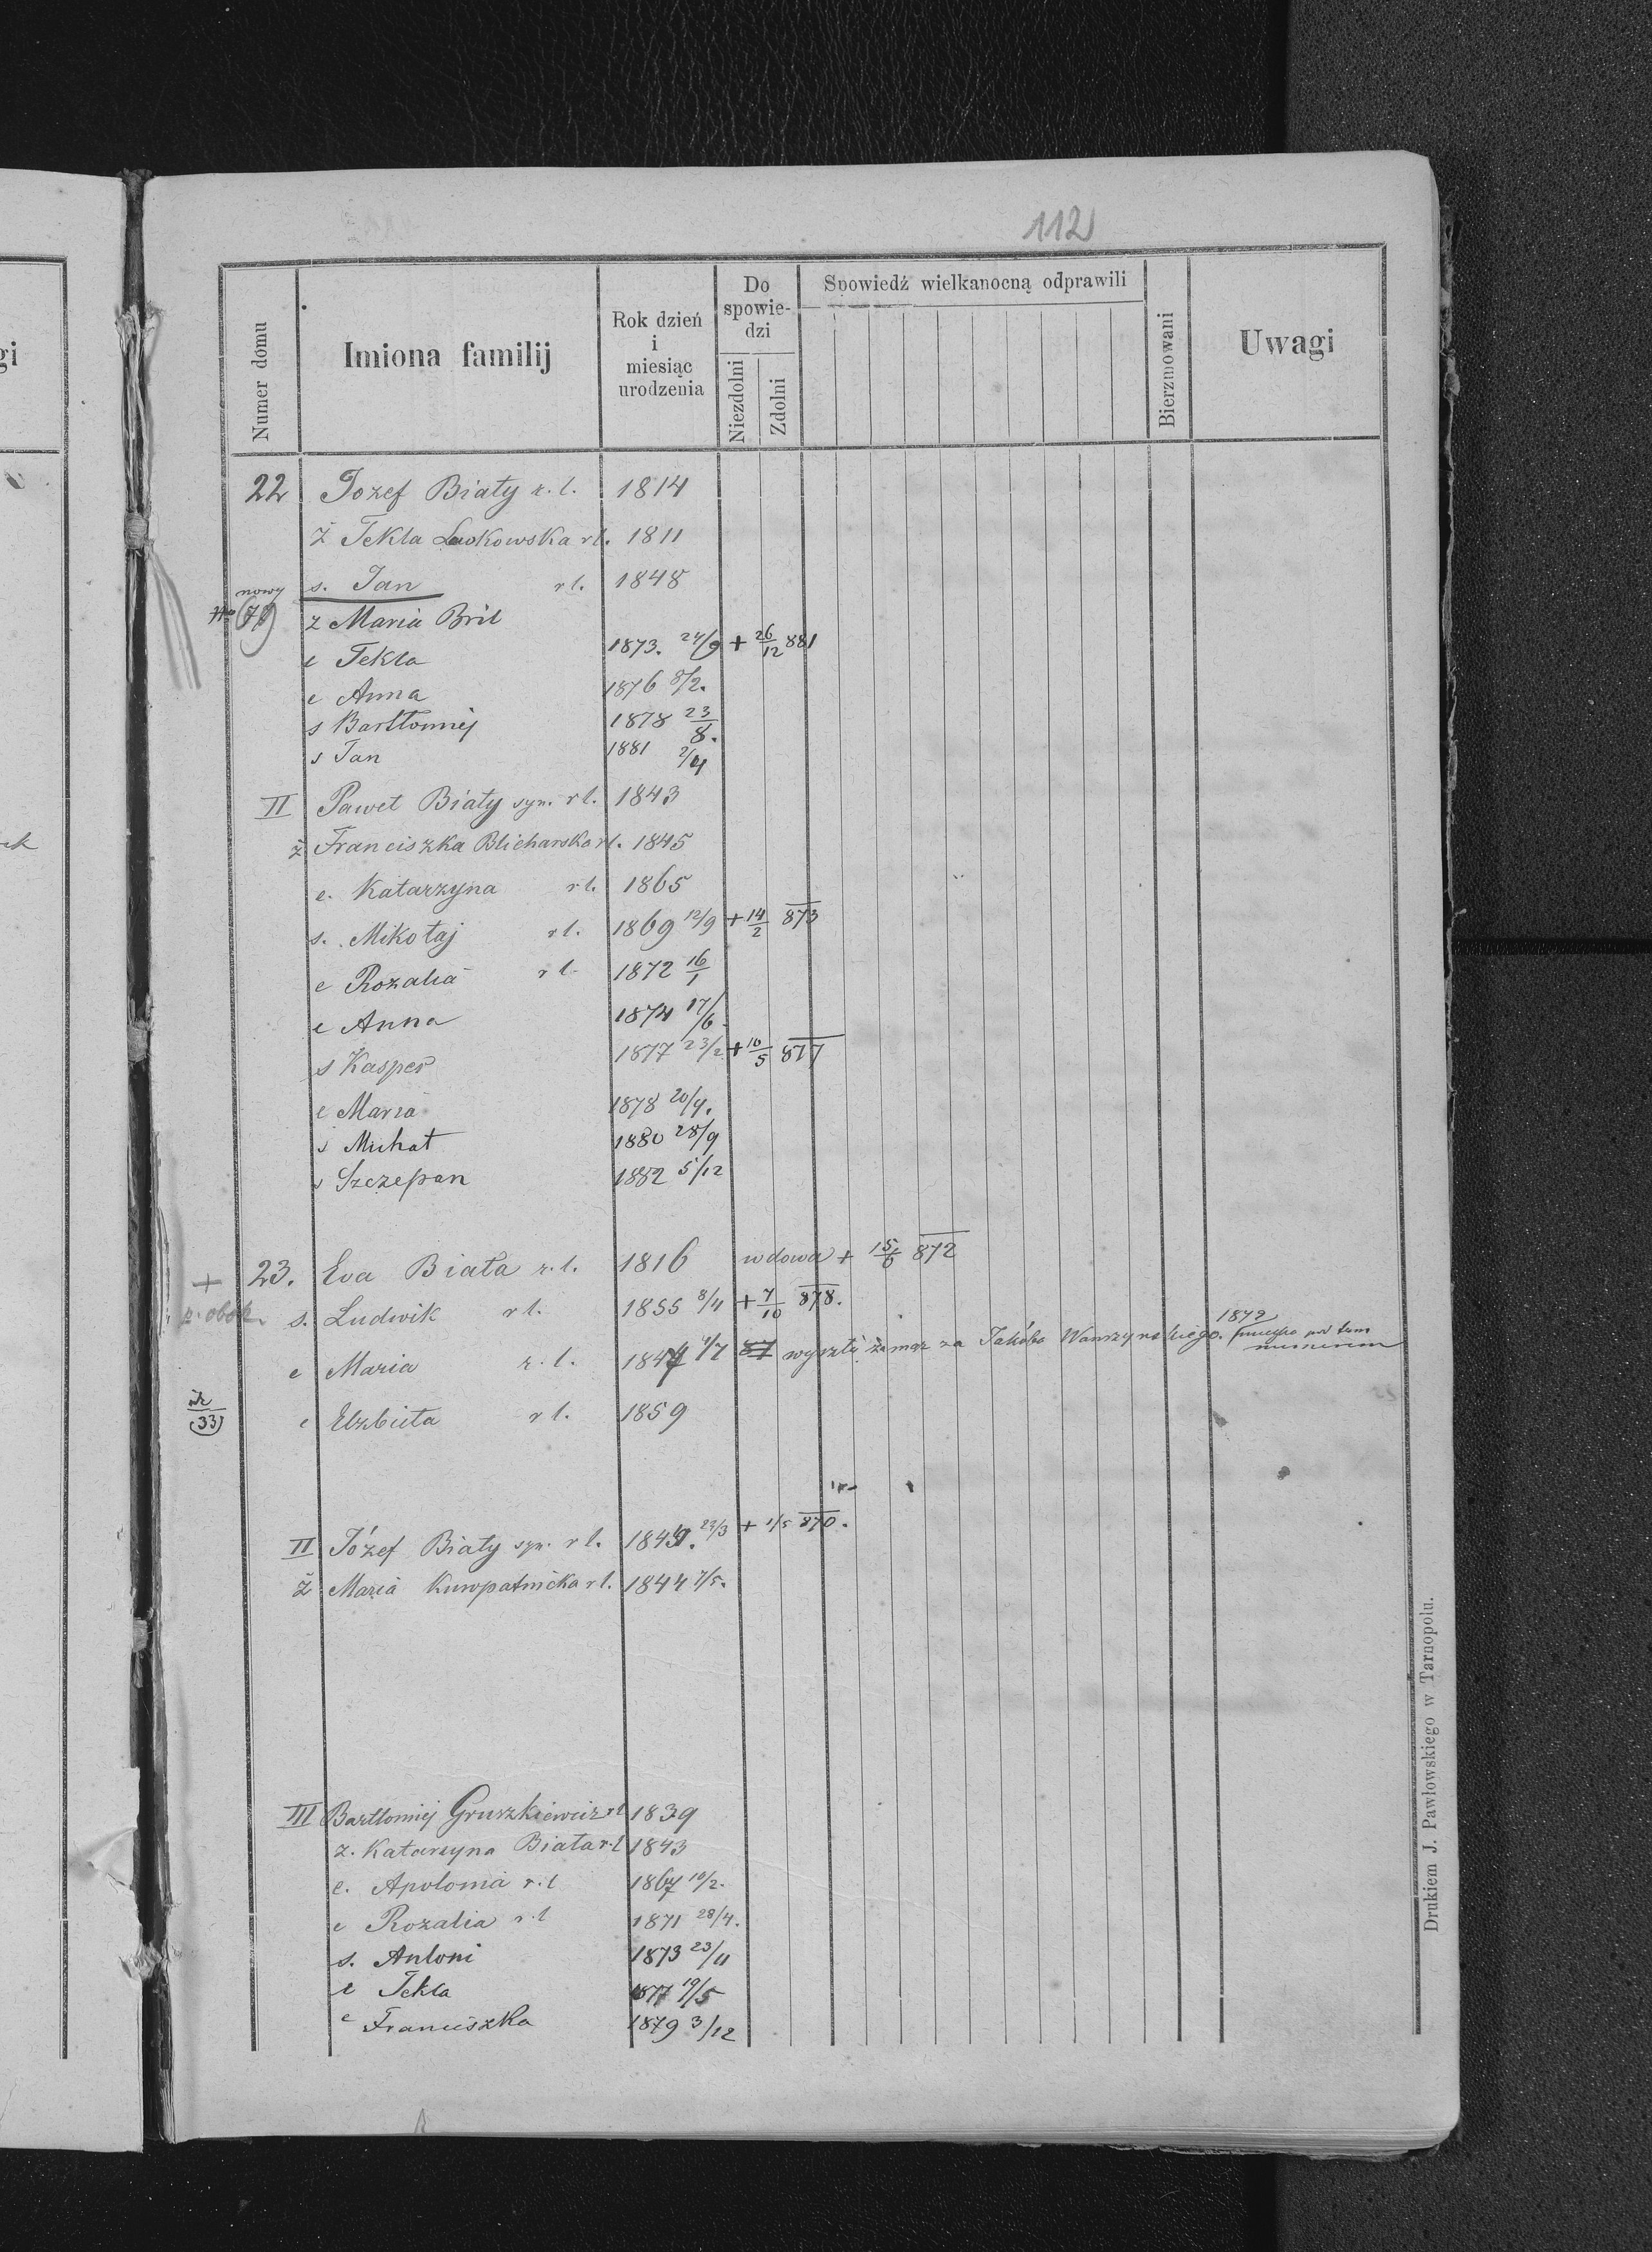 112
Numer domu
Imiona familij
Rok dzień
i
miesiąc
urodzenia
Do
spowie-
dzi
Niezdolni
Zdolni
Spowiedź wielkanocną odprawili
Bierzmowani
Uwagi
gi
22 Jozef Biały r. l. 1814
ż Tekla r l. 1811
s. Jan r l. 1848
nowy
No 79 ż Maria Bril
c Tekla 1873. 24/9 + 26/12 881
c Anna 1876 8/2.
s Bartłomiej 1878 23/8.
s Jan 1881 2/4
II Paweł Biały syn. r l. 1843
ż Franciszka Blicharska r l. 1845
c. Katarzyna r l. 1865
s. Mikołaj r l. 1869 12/9 + 14/2 873
c Rozalia r l. 1872 16/1
c Anna 1874 17/6
s Kasper 1877 23/2 + 10/5 877
c Maria 1878 20/4.
s Michał 1880 28/9
s Szczepan 1882 5/12
+ 23. Eva Biała r. l. 1816 wdowa + 15/6 872
s. Ludwik r l. 1855 8/4 + 7/10 878.
c Maria r. l. wyszła zamąż za Jakóba Wawrzynskiego. 1872 pod tem numerem
(33) c Elzbieta r l. 1859
II Józef Biały syn. r l. 23/3 + 1/5 870.
ż Maria Kuropatnicka r l. 1844 7/5.
III Bartłomiej Gruszkiewicz r l 1839
ż. Katarzyna Biała r l 1843
c. Apolonia r. l 1867 10/2.
c Rozalia r. l 1871 28/4.
s. Antoni 1873 23/11
c Tekla 1877 19/5
c Franciszka 1879 3/12
Drukiem J. Pawłowskiego w Tarnopolu.